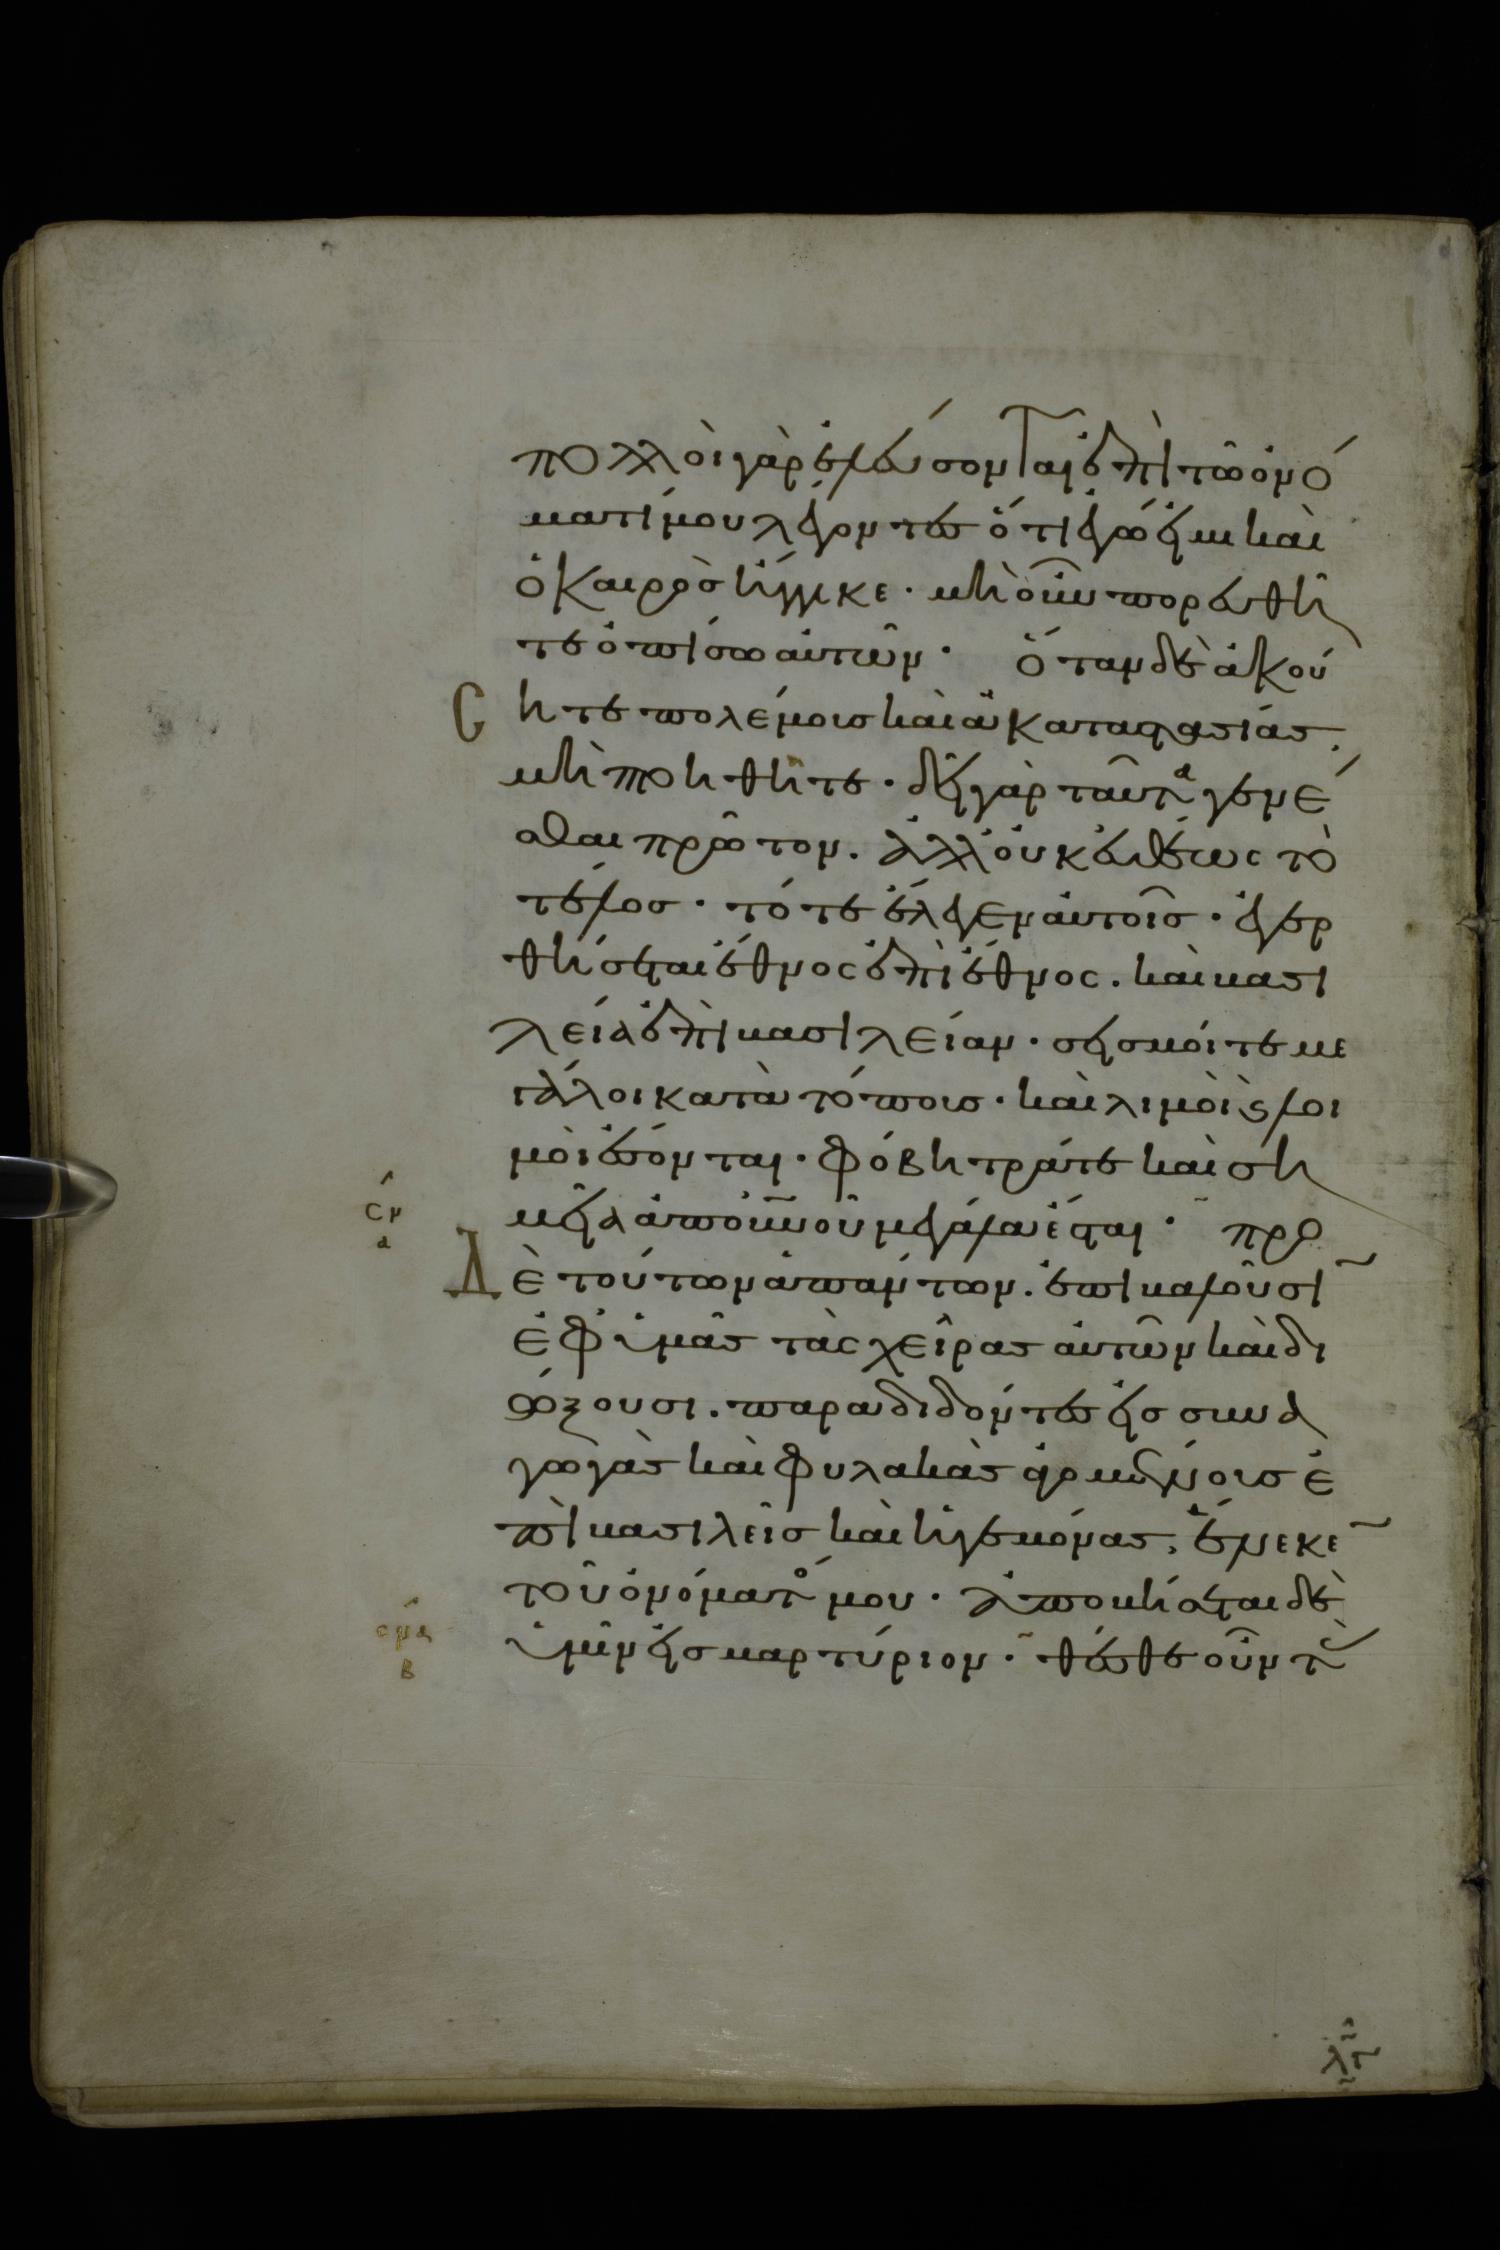 πολλοὶ γὰρ ἐλεύσονται ἐπὶ τῶ ὀνό
ματί μου λέγοντες ὅτι ἐγώ εἰμι καὶ
ὁ καιρὸς ἤγγικε · μὴ οὖν πορευθῆ
τε ὀπίσω αὐτῶν · Ὅταν δὲ ἀκού
σητε πολέμους καὶ ἀκαταστασίας,
μὴ πτοηθῆτε · δεῖ γὰρ ταῦτα γενέ
σθαι πρῶτον. ἀλλ' οὐκ εὐθέως τὸ
τέλος · τότε ἔλεγεν αὐτοῖς · ἐγερ
θήσεται ἔθνος ἐπὶ ἔθνος. καὶ βασι
λεία ἐπὶ βασιλείαν · σεισμοί τε με
γάλοι κατὰ τόπους · καὶ λιμοὶ ϗ λοι
μοὶ ἔσονται · φόβητρά τε καὶ ση
μεῖα ἀπ' οὐνοῦ μεγάλα ἔσται · πρὸ
Δὲ τούτων ἁπάντων. ἐπιβαλοῦσι
ἐφ' ὑμᾶς τὰς χεῖρας αὐτῶν καὶ δι
ώξουσι. παραδιδόντες εἰς συνα
γωγὰς καὶ φυλακὰς ἀγομένους ἐ
πὶ βασιλεῖς καὶ ἡγεμόνας, ἕνεκε
τοῦ ὀνόματός μου · ἀποβήσεται δὲ
ὑμῖν εἰς μαρτύριον · θέσθε οὖν
σμ
α
σμα
β